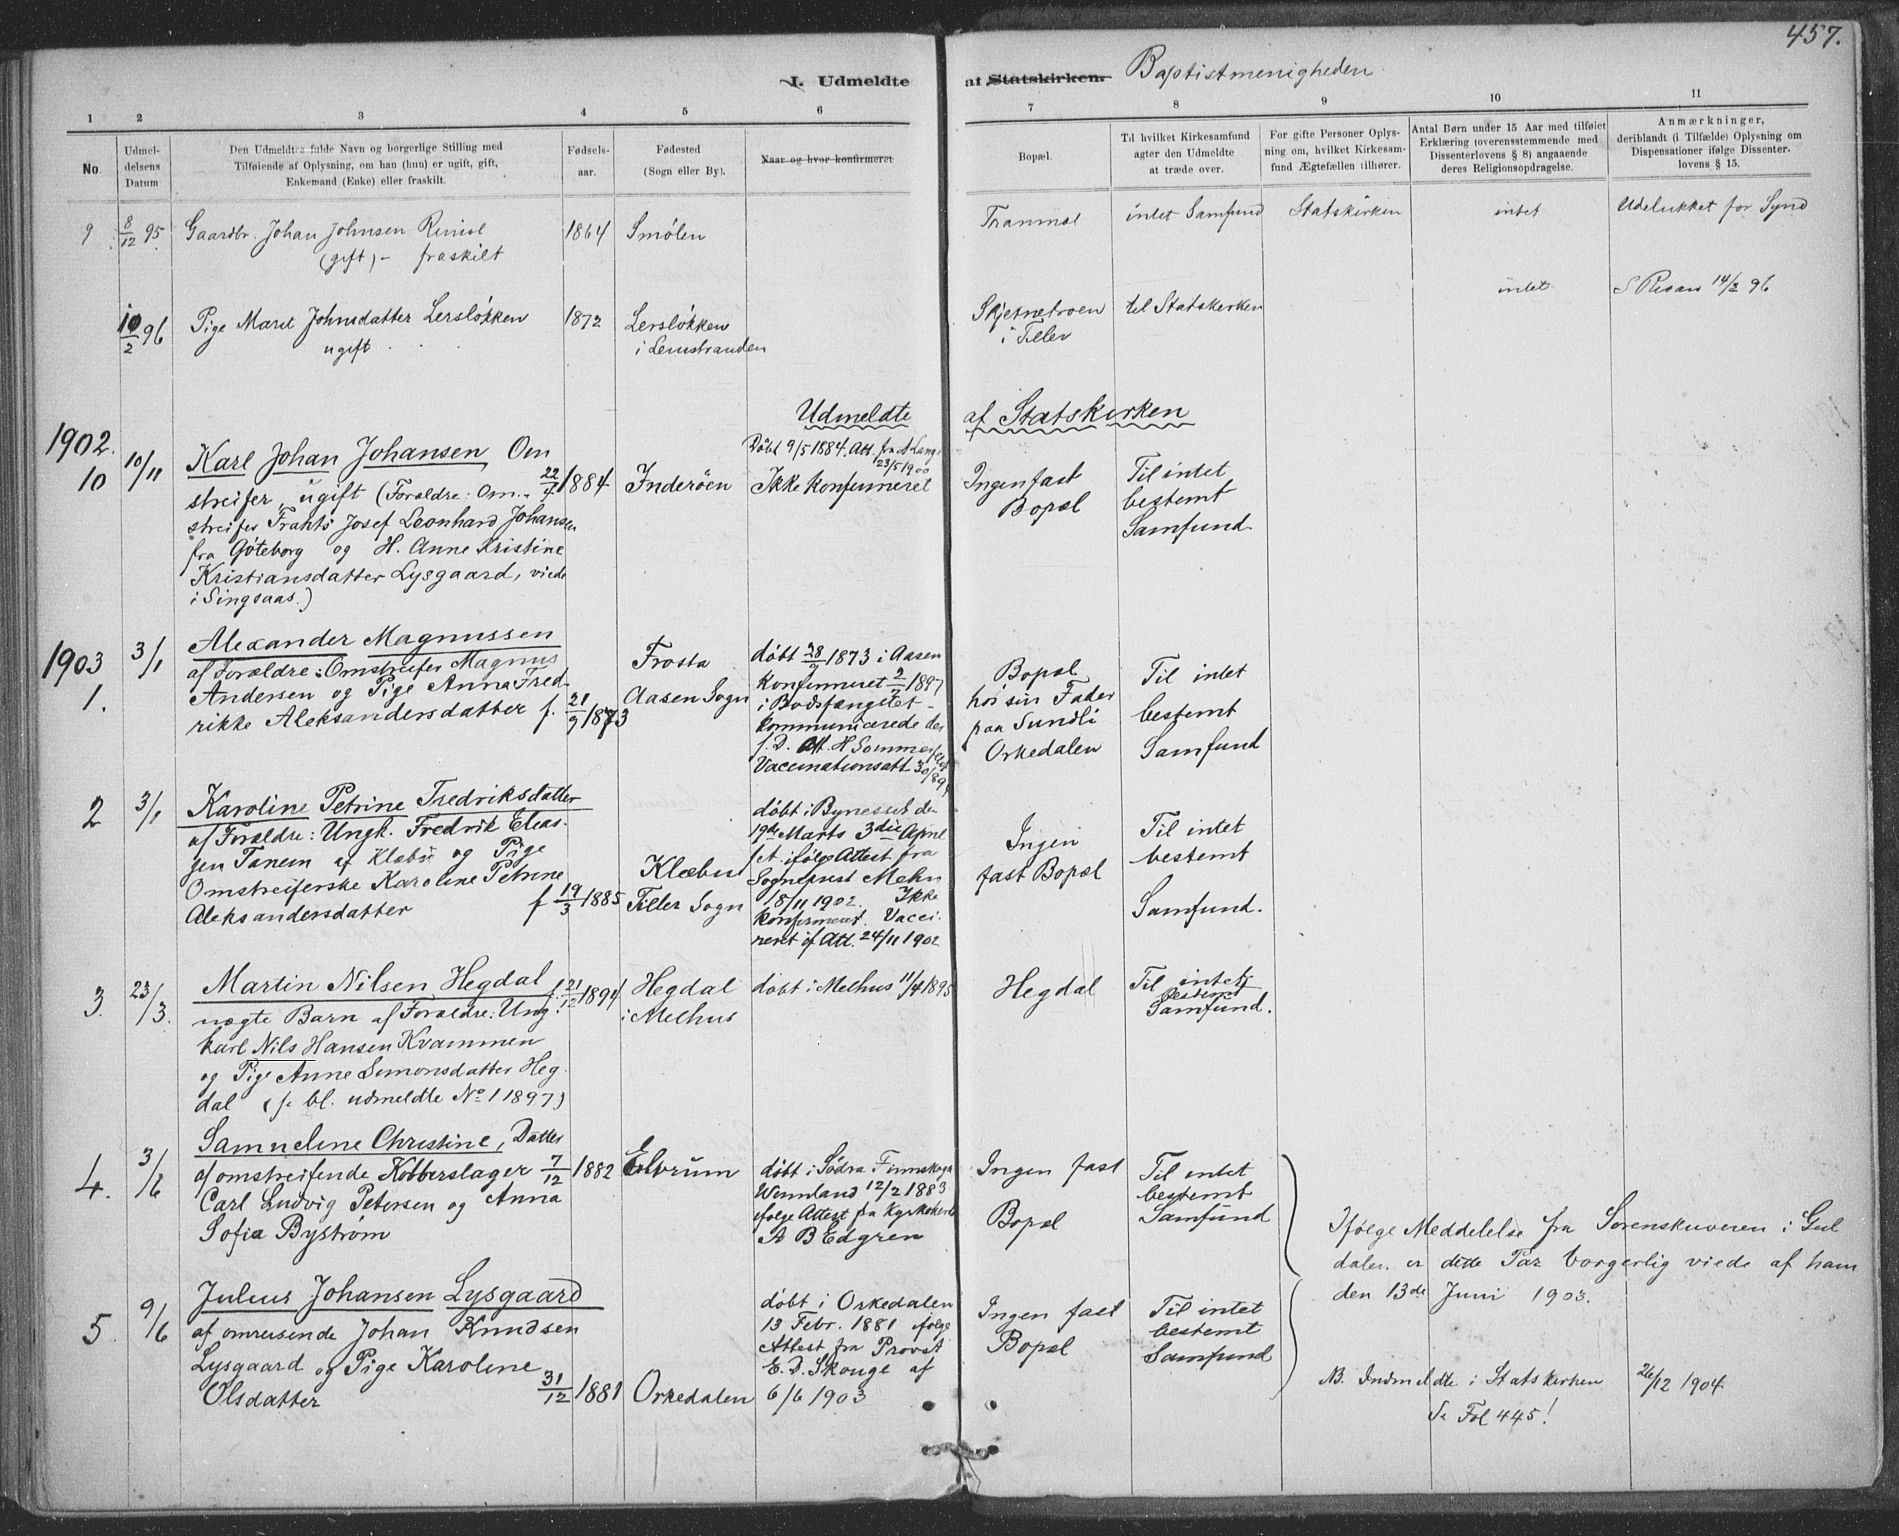 457.
I. Udmeldte af Statskirken. Baptistmenigheden
1 2 3 4 5 6 7 8 9 10 11
No.
Udmel-
delsens
Datum
Den Udmeldtes fulde Navn og borgerlige Stilling med
Tilføiende af Oplysning, om han (hun) er ugift, gift,
Enkemand (Enke) eller fraskilt.
Fødsels-
aar.
Fødested
(Sogn eller By).
Naar og hvor konfirmeret
Bopæl.
Til hvilket Kirkesamfund
agter den Udmeldte
at træde over.
For gifte Personer Oplys-
ning om, hvilket Kirkesam-
fund Ægtefællen tilhører.
Antal Børn under 15 Aar med tilføiet
Erklæring (overensstemmende med
Dissenterlovens § 8) angaaende
deres Religionsopdragelse.
Anmærkninger,
deriblandt (i Tilfælde) Oplysning om
Dispensationer ifølge Dissenter-
lovens § 15.
9 8/12 95. Gaardbr. Johan Johnsen
(gift) - fraskilt
1864
Smølen
intet Samfund
Statskirken
intet
Udelukket for Synd
10/2 96 Pige Marit Johnsdatter Lersløkken
ugift
1872
Lersløkken
i Leinstranden
i Tiller
til Statskirken
intet
14/2 96
Udmeldte af Statskirken
1902.
10
10/11
Karl Johan Johansen, Om
streifer, ugift (Forældre: Om-
streifer Frants Josef Leonhard Johansen
fra Göteborg og H. Anne Kristine
Kristiansdatter Lysgaard, viede
i Singsaas.)
22/4 1884
Inderøen
Døbt 9/5 1884. Att. fra A Lang
23/5 1900
Ikke konfirmeret
Ingen fast
Bopæl
Til intet
bestemt
Samfund.
1903
1.
3/1
Alexander Magnussen
af Forældre: Omstreifer Magnus
Andersen og Pige Anna Fred-
rikke Aleksandersdatter f. 21/9 1873
Frosta
Aasen Sogn
døbt 28/9 1873 i Aasen
konfirmeret 2/7 1897
i Bodsfængslet -
kommunicerede der
s. D. Att. H Sommerfelt
Vaccinationsatt 30/
Bopæl
hos sin Fader
paa Sundli
Orkedalen
Til intet
bestemt
Samfund
2
3/1
Karoline Petrine Fredriksdatter
af Forældre: Ungk. Fredrik Elias-
sen Tanem af Klæbu og Pige
Omstreiferske Karoline Petrine
Aleksandersdatter f 19/3 1885
Klæbu
Tiller Sogn
døbt i Bynesset de-
19de Marts 3die April
s A. ifølge Attest fra
Sogneprest Mehn
18/11 1902. Ikke
konfirmeret. Vacci-
neret if Att. 24/11 1902
Ingen
fast Bopæl
Til intet
bestemt
Samfund.
3.
23/3.
Martin Nilsen Hegdal
uægte Barn af Forældre: Ung-
karl Nils Hansen Kvammen
og Pige Anne Simonsdatter Heg-
dal (se bl. udmeldte No 1 1897)
f. 21/12 1894
Hegdal
i Melhus
døbt i Melhus 11/4 1895
Hegdal
Til intet
bestemt
Samfund.
4.
3/6
Samueline Christine, Datter
af omstreifende Kobberslager
Carl Ludvig Petersen og Anna
Sofia Byström
7/12 1882
Elverum
døbt i Södra Finnskoga
Wermland 12/2 1883
ifølge Attest fra Kyrkoherde
A B Edgren
Ingen fast
Bopæl
Til intet
bestemt
Samfund
Ifølge Meddelelse fra Sorenskriveren i Gul
dalen er dette Par borgerlig viede af ham
den 13de Juni 1903.
5.
9/6
Julius Johansen Lysgaard
af omreisende Johan Knudsen
Lysgaard og Pige Karoline
Olsdatter
31/12 1881
Orkedalen
døbt i Orkedalen
13 Febr. 1881 ifølge
Attest fra Provst
E. D. Skouge af
6/6 1903
Ingen fast
Bopæl
Til intet
bestemt
Samfund
NB. Indmeldte i Statskirken 26/12 1904.
Se Fol 445!